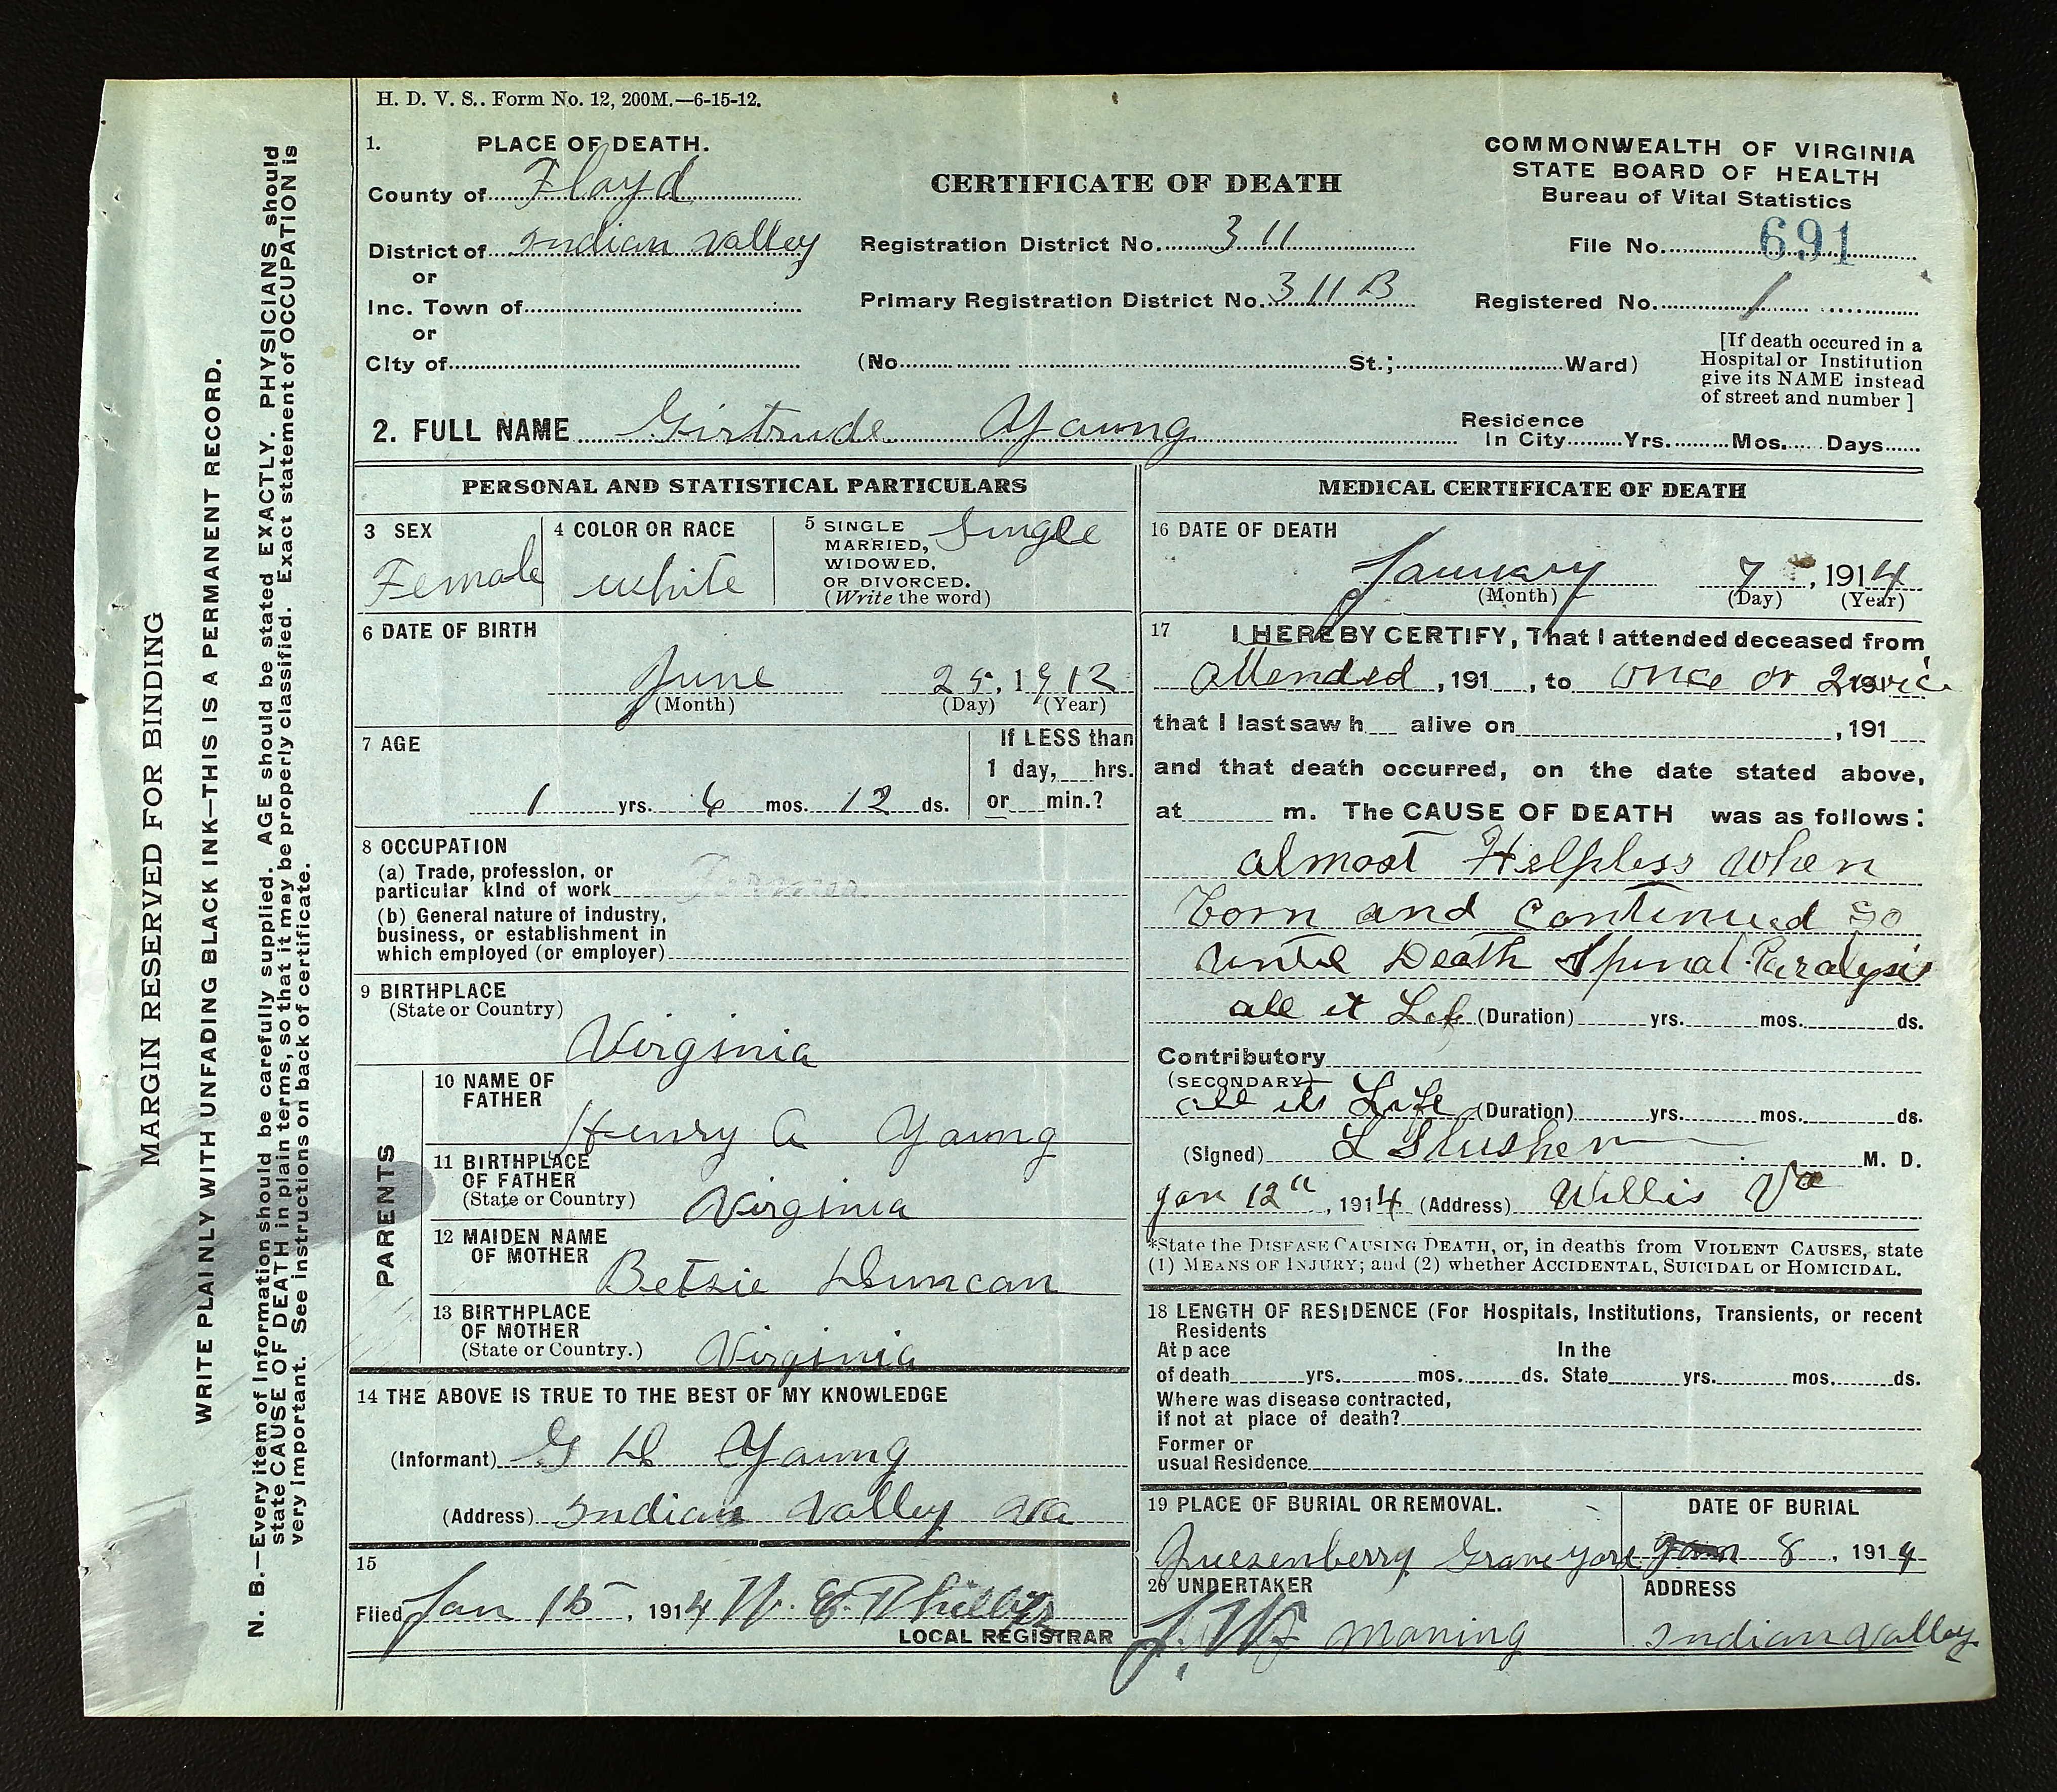 H. D. V. S.. Form No. 12, 200M.—6-15-12.
1. PLACE OF DEATH.
County of Floyd
District of Indian Valley
or
Inc. Town of
or
City of
CERTIFICATE OF DEATH
Registration District No. 311
Primary Registration District No. 311 B
(No. St.; Ward)
COMMONWEALTH OF VIRGINIA
STATE BOARD OF HEALTH
Bureau of Vital Statistics
File No. 691
Registered No. 1
[If death occured in a
Hospital or Institution
give its NAME instead
of street and number ]
2. FULL NAME Girtrude Young
Residence
In City Yrs. Mos. Days
PERSONAL AND STATISTICAL PARTICULARS
3 SEX
Female
4 COLOR OR RACE
white
5 SINGLE
MARRIED,
WIDOWED,
OR DIVORCED.
(Write the word)
Single
6 DATE OF BIRTH
June 25, 1912
(Month) (Day) (Year)
7 AGE
1 yrs. 6 mos. 12 ds.
If LESS than
1 day, hrs.
or min.?
8 OCCUPATION
(a) Trade, profession, or
particular kind of work
(b) General nature of industry,
business, or establishment in
which employed (or employer)
9 BIRTHPLACE
(State or Country)
Virginia
PARENTS
10 NAME OF
FATHER
Henry A Young
11 BIRTHPLACE
OF FATHER
(State or Country)
Virginia
12 MAIDEN NAME
OF MOTHER
Betsie Duncan
13 BIRTHPLACE
OF MOTHER
(State or Country.)
Virginia
14 THE ABOVE IS TRUE TO THE BEST OF MY KNOWLEDGE
(Informant) G D Young
(Address) Indian Valley Va
15
Filed Jan 15, 1914 W. E. Phillips
LOCAL REGISTRAR
MEDICAL CERTIFICATE OF DEATH
16 DATE OF DEATH
January 7, 1914
(Month) (Day) (Year)
17 I HEREBY CERTIFY, That I attended deceased from
attended, 191 , to once or 2wice
that I last saw h alive on , 191
and that death occurred, on the date stated above,
at m. The CAUSE OF DEATH was as follows:
almost Helpless when
born and continued so
until Death Spinal Paralysis
all it Life (Duration) yrs. mos. ds.
Contributory
(SECONDARY)
all its Life (Duration) yrs. mos. ds.
(Signed) L Slusher M. D.
Jan 12", 1914 (Address) Willis Va
*State the DISEASE CAUSING DEATH, or, in deaths from VIOLENT CAUSES, state
(1) MEANS OF INJURY; and (2) whether ACCIDENTAL, SUICIDAL or HOMICIDAL.
18 LENGTH OF RESIDENCE (For Hospitals, Institutions, Transients, or recent
Residents
At p ace In the
of death yrs. mos. ds. State yrs. mos. ds.
Where was disease contracted,
if not at place of death?
Former or
usual Residence
19 PLACE OF BURIAL OR REMOVAL.
Quesenberry Graveyard
DATE OF BURIAL
Jan 8, 1914
20 UNDERTAKER
Maning
ADDRESS
Indian Valley
MARGIN RESERVED FOR BINDING
WRITE PLAINLY WITH UNFADING BLACK INK—THIS IS A PERMANENT RECORD.
N. B.—Every item of Information should be carefully supplied. AGE should be stated EXACTLY. PHYSICIANS should
state CAUSE OF DEATH in plain terms, so that it may be properly classified. Exact statement of OCCUPATION is
very important. See instructions on back of certificate.